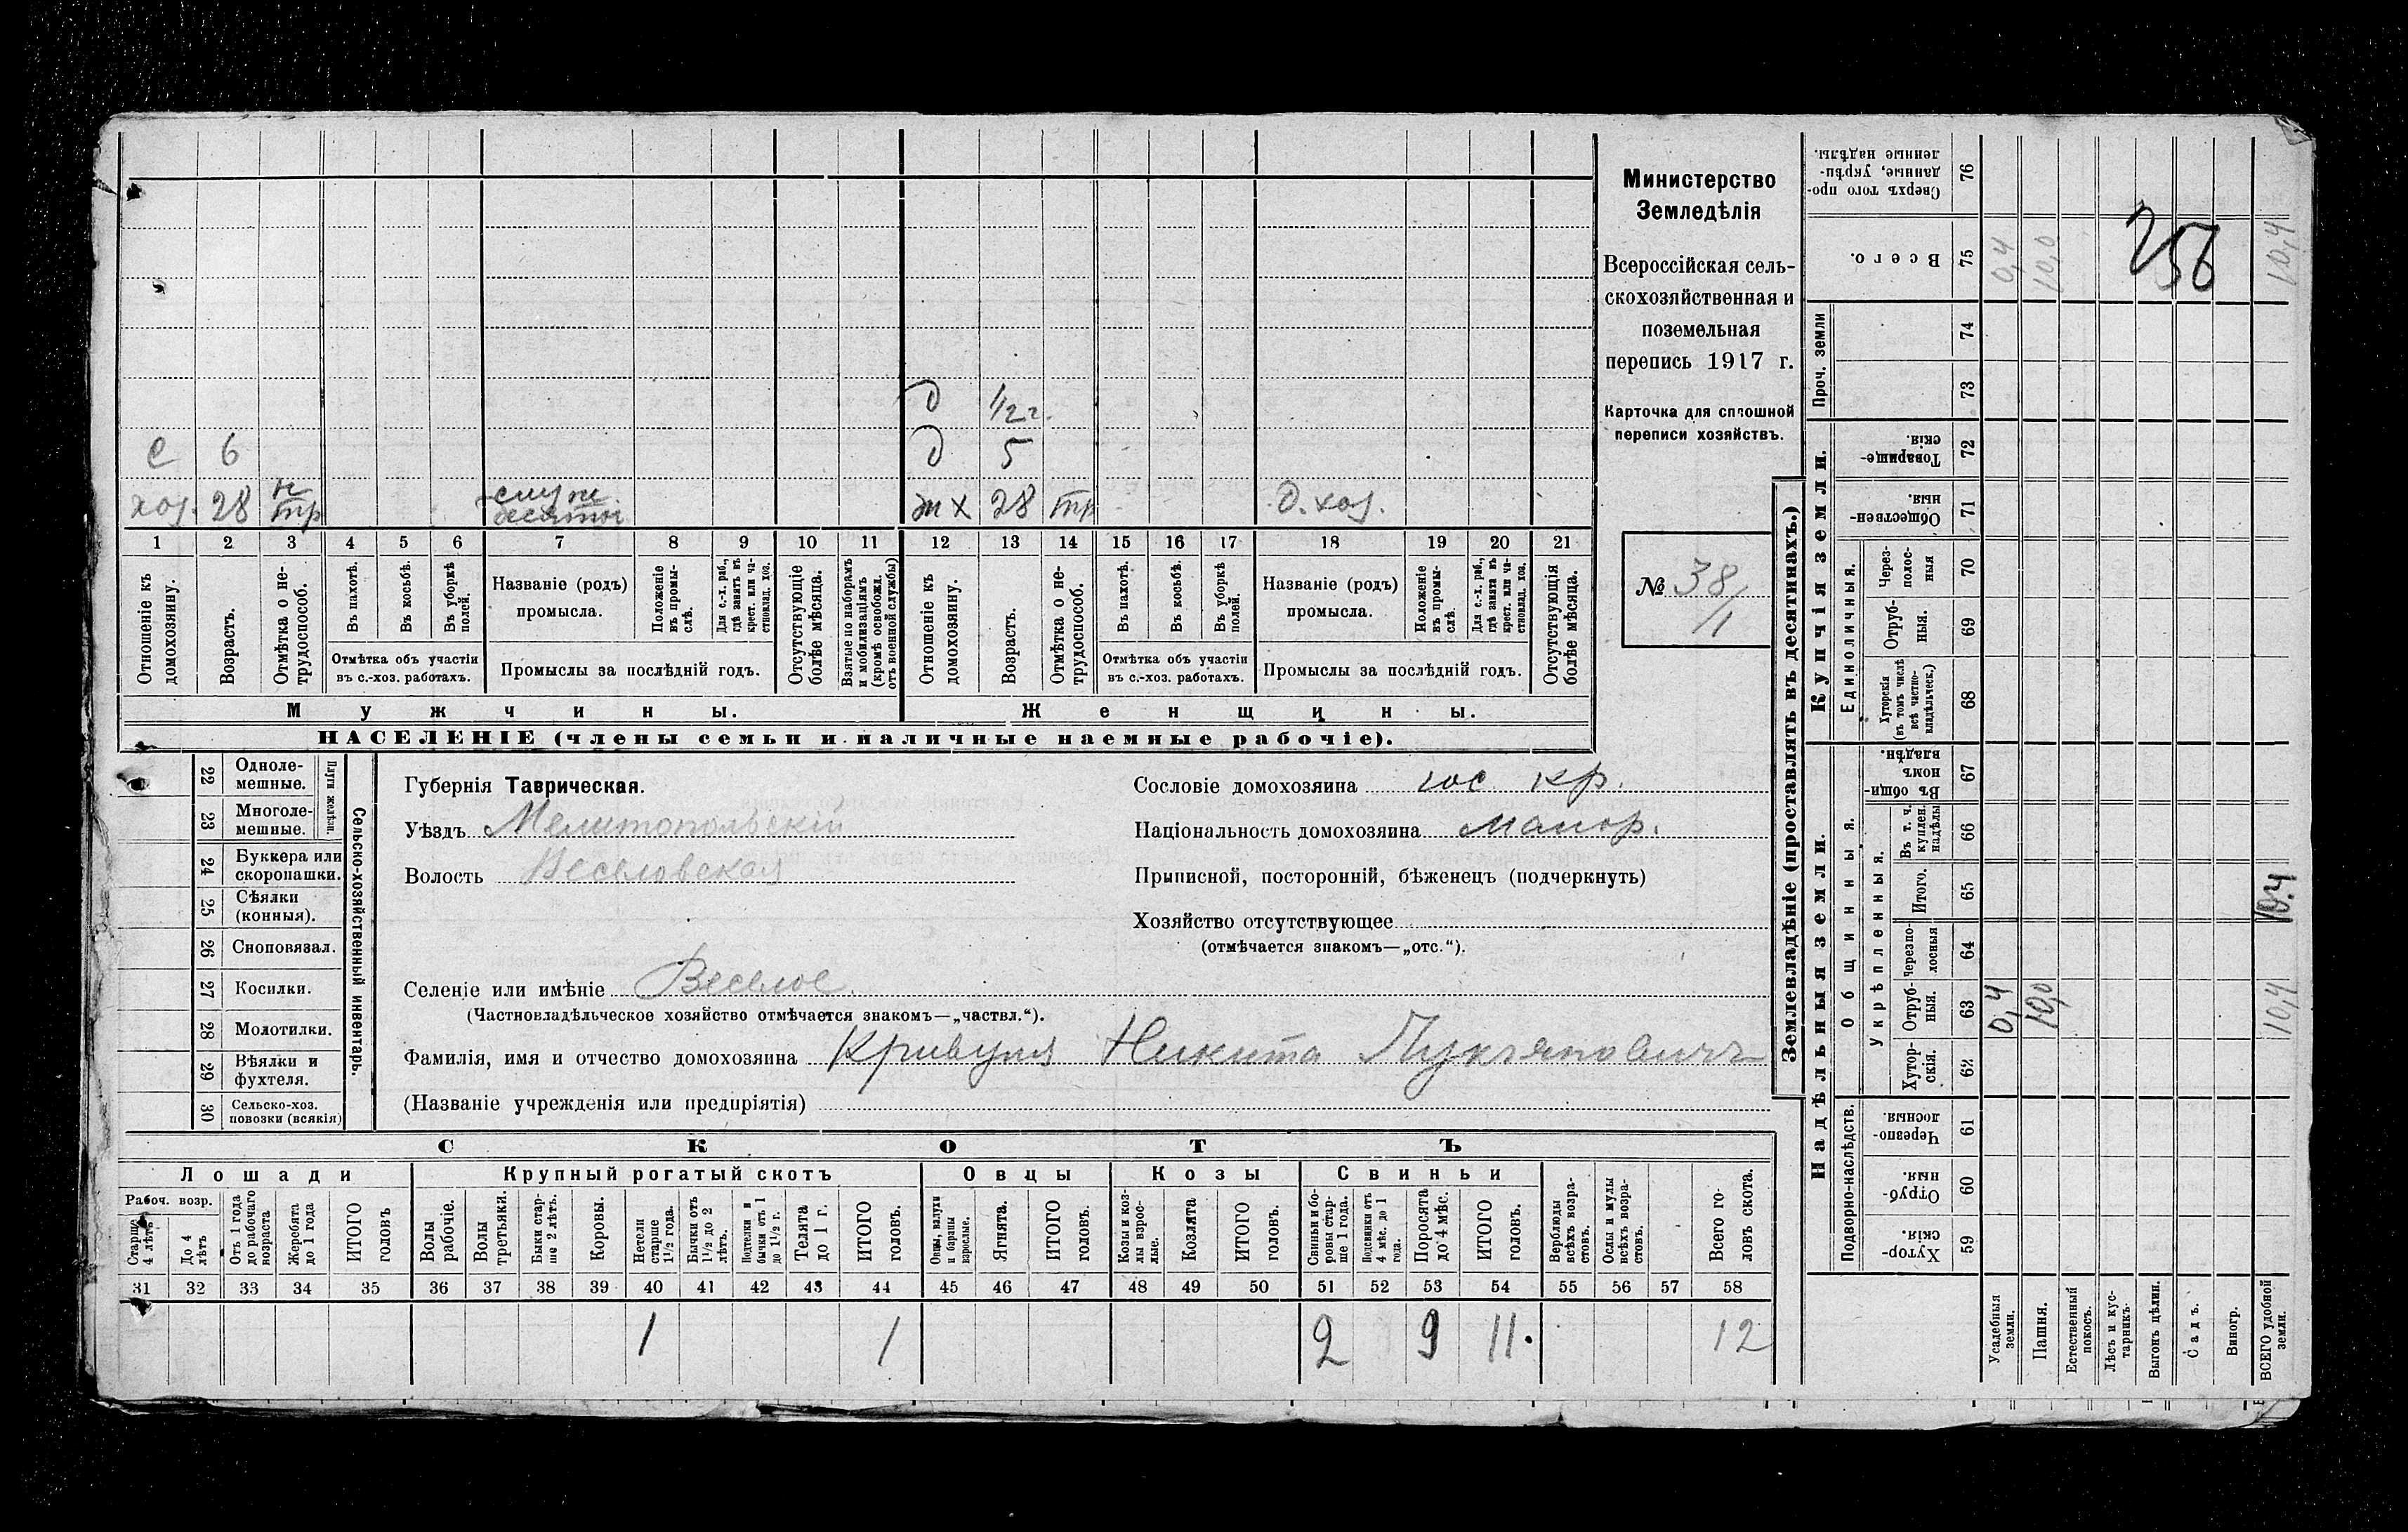 Министерство
Земледѣлія
Всероссійская сель-
скохозяйственная и
поземельная
перепись 1917 г.
Карточка для сплошной
переписи хозяйствъ.
№ 38/1
д 1/2 г.
с 6 д 5
хоз. 28 н тр ж х 28 тр д. хоз.
1 2 3 4 5 6 7 8 9 10 11 12 13 14 15 16 17 18 19 20 21
Отношеніе къ домохозяину.
Возрастъ.
Отмѣтка о не-трудоспособ.
Въ пахотѣ.
Въ косьбѣ.
Въ уборкѣ полей.
Отмѣтка объ участіи
въ с.-хоз. работахъ.
Названіе (родъ)
промысла.
Положеніе въ промы-слѣ.
Для с.-х. раб., гдѣ занятъ въ крест. или ча-стновлад. хоз.
Промыслы за послѣдній годъ.
Отсутствующіе болѣе мѣсяца.
Взятые по наборамъ и мобилизаціямъ (кромѣ освобожд. отъ военной службы)
Отношеніе къ домохозяину.
Возрастъ.
Отмѣтка о не-трудоспособ.
Въ пахотѣ.
Въ косьбѣ.
Въ уборкѣ полей.
Отмѣтка объ участіи
въ с.-хоз. работахъ.
Названіе (родъ)
промысла.
Положеніе въ промы-слѣ.
Для с.-х. раб., гдѣ занята въ крест. или ча-стновлад. хоз.
Промыслы за послѣдній годъ.
Отсутствующія болѣе мѣсяца.
Мужчины. Женщины.
НАСЕЛЕНІЕ (члены семьи и наличные наемные рабочіе).
22 Одноле-мешные.
23 Многоле-мешные.
Плуги желѣзн.
24 Буккера или скоропашки.
25 Сѣялки (конныя).
26 Сноповязал.
27 Косилки.
28 Молотилки.
29 Вѣялки и фухтеля.
30 Сельско-хоз. повозки (всякія)
Сельско-хозяйственный инвентарь.
Губернія Таврическая.
Уѣздъ Мелитопольскій
Волость Веселовская
Селеніе или имѣніе Веселое.
(Частновладѣльческое хозяйство отмѣчается знакомъ—„частвл.“).
Фамилія, имя и отчество домохозяина Кривуля Никита Лукьяновичъ
(Названіе учрежденія или предпріятія)
Сословіе домохозяина гос. кр.
Національность домохозяина малор.
Приписной, посторонній, бѣженецъ (подчеркнуть)
Хозяйство отсутствующее
(отмѣчается знакомъ—„отс.“).
СКОТЪ
Лошади Крупный рогатый скотъ Овцы Козы Свиньи
Рабоч. возр.
Старше 4 лѣтъ
До 4 лѣтъ
Отъ 1 года до рабочаго возраста
Жеребята до 1 года
ИТОГО головъ
Волы рабочіе.
Волы третьяки.
Быки стар-ше 2 лѣтъ.
Коровы.
Нетели старше 1½ года.
Бычки отъ 1½ до 2 лѣтъ.
Подтелки и бычки отъ 1 до 1½ г.
Телята до 1 г.
ИТОГО головъ.
Овцы, валухи и бараны взрослые.
Ягнята.
ИТОГО головъ.
Козы и коз-лы взрос-лые.
Козлята
ИТОГО головъ.
Свиньи и бо-ровы стар-ше 1 года.
Подсвинки отъ 4 мѣс. до 1 года.
Поросята до 4 мѣс.
ИТОГО головъ.
Верблюды всѣхъ возра-стовъ.
Ослы и мулы всѣхъ возра-стовъ.
Всего го-ловъ скота.
31 32 33 34 35 36 37 38 39 40 41 42 43 44 45 46 47 48 49 50 51 52 53 54 55 56 57 58
1 1 2 9 11 12
Землевладѣніе (проставлять въ десятинахъ.)
Надѣльныя земли. Купчія земли. Проч. земли
Подворно-наслѣдств.
Общинныя.
Укрѣпленныя.
Единоличныя.
59 Хутор-скія.
60 Отруб-ныя.
61 Черезпо-лосныя.
62 Хутор-скія.
63 Отруб-ныя. 0,4 10,0 10,4
64 Черезпо-лосныя
65 Итого. 10.4
66 Въ т. ч. куплен. надѣлы
67 Въ общи-номъ владѣн.
68 Хуторскія (въ томъ числѣ всѣ частно-владѣльческ.)
69 Отруб-ныя.
70 Через-полос-ныя
71 Обществен-ныя.
72 Товарище-скія.
73
74
75 Всего. 0,4 10,0 10,4
76 Сверхъ того про-данные, укрѣп-ленные надѣлы.
256
Усадебныя земли.
Пашня.
Естественный покосъ.
Лѣсъ и кус-тарникъ.
Выгонъ цѣлин.
Садъ.
Виногр.
ВСЕГО удобной земли.